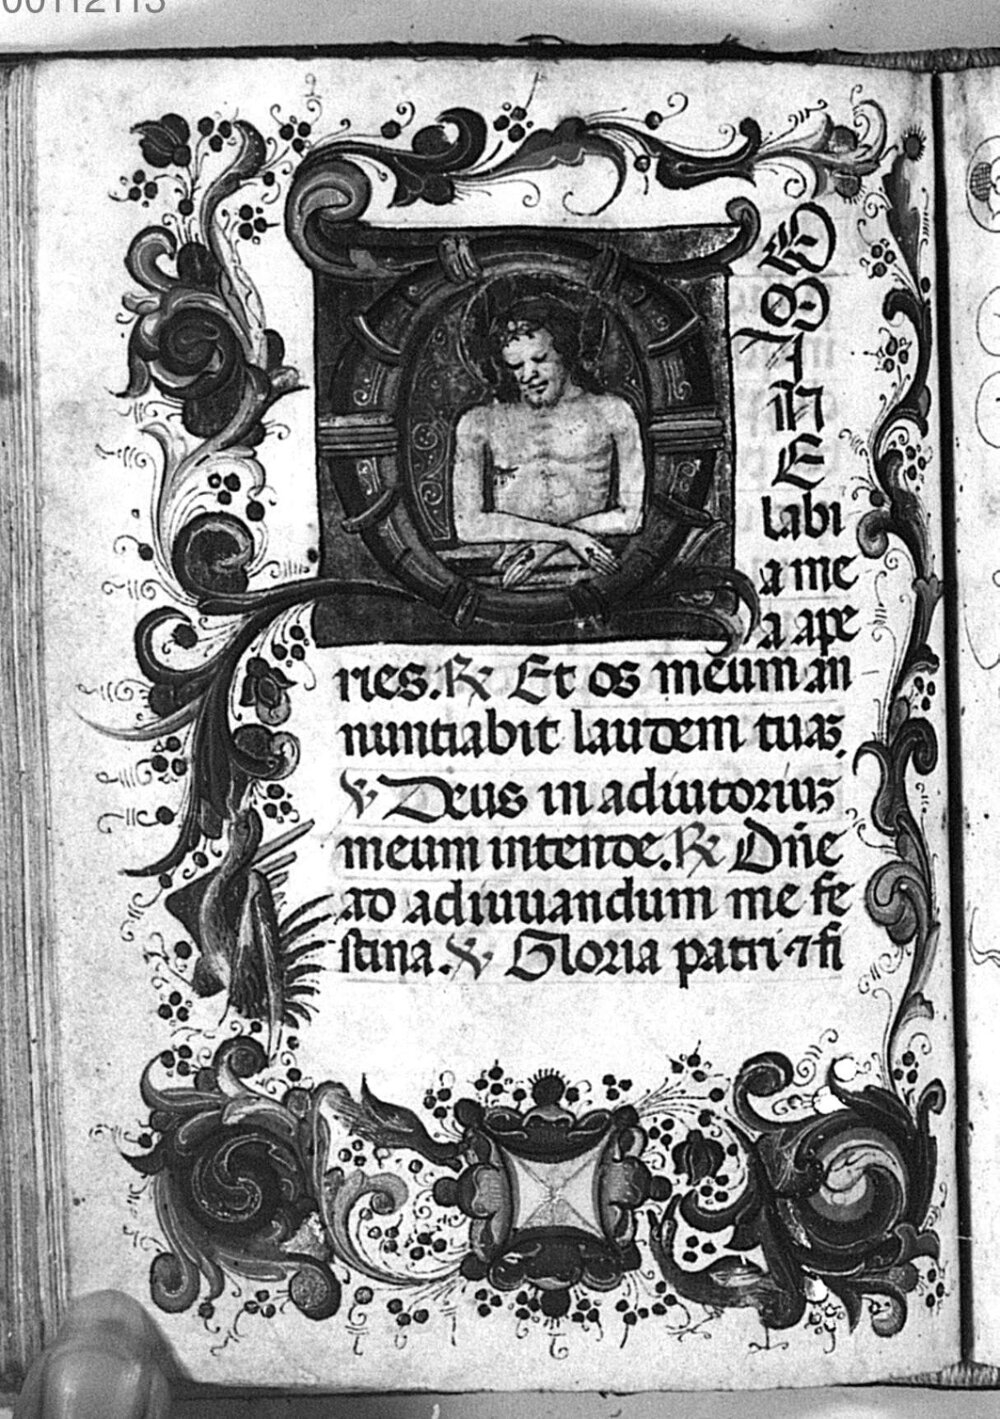 00112113
D
O
I
N
E
labi
a me
a ape
ries. ℟ Et os meum an
nuntiabit laudem tuaꝫ.
℣ Deus in adiutoriuꝫ
meum intende. ℟ Dn̄e
ad adiuuandum me fe
stina. ℣ Gloria patri ⁊ fi